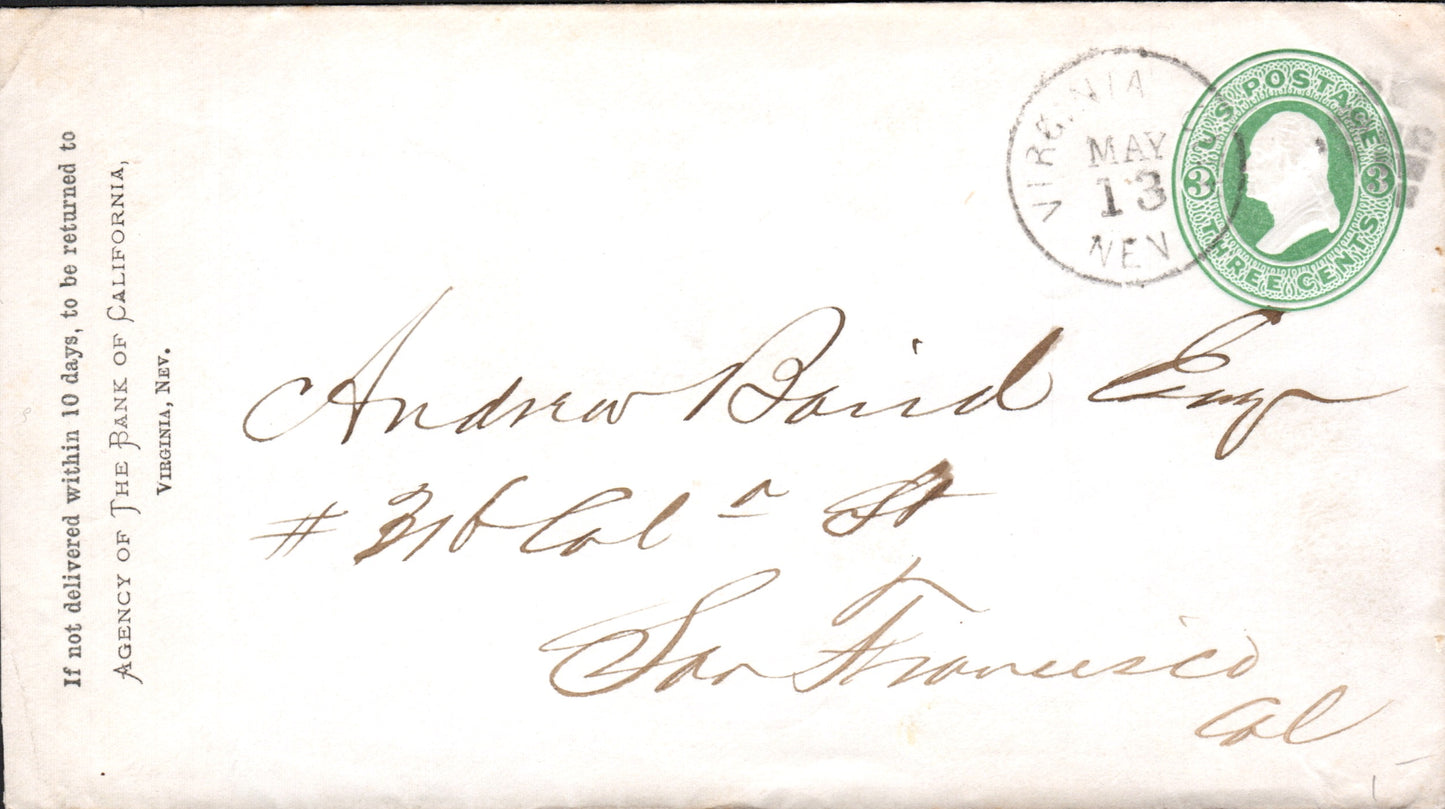 If not delivered within 10 days, to be returned to
AGENCY OF THE BANK OF CALIFORNIA,
VIRGINIA, NEV.
VIRGINIA
MAY
13
NEV
U.S. POSTAGE
3 3
THREE CENTS
Andrew Baird Esqr
# 316 Cal a St
San Francisco
Cal